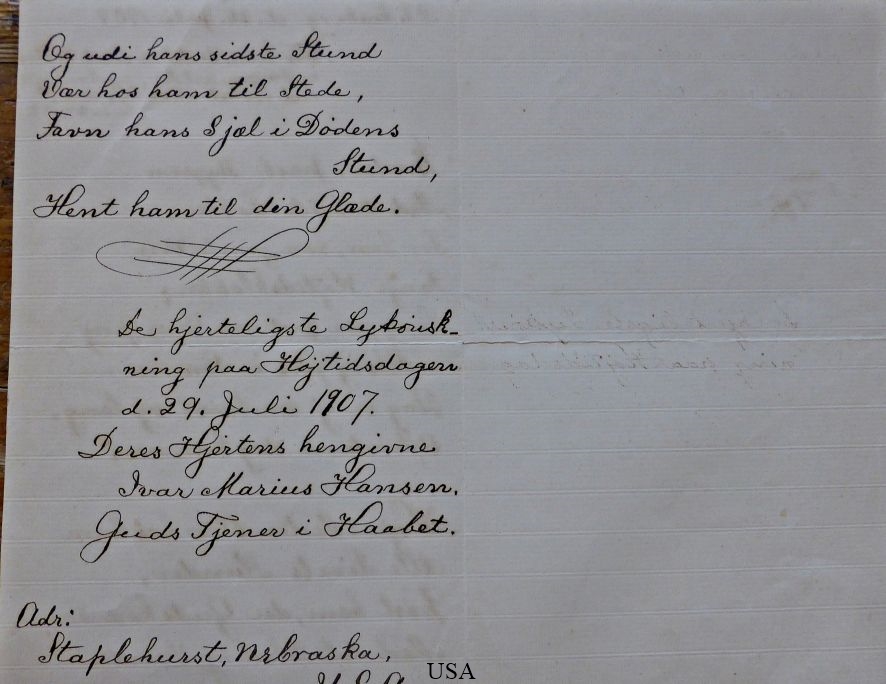 Og udi hans sidste Stund
Vær hos ham til Stede,
Favn hans Sjæl i Dødens
Stund,
Hent ham til din Glæde.
De hjerteligste Lykønsk-
ning paa Højtidsdagen
d. 29. Juli 1907.
Deres Hjertens hengivne
Ivar Marius Hansen.
Guds Tjener i Haabet.
Adr:
Staplehurst, Nebraska,
U.S.A.
USA